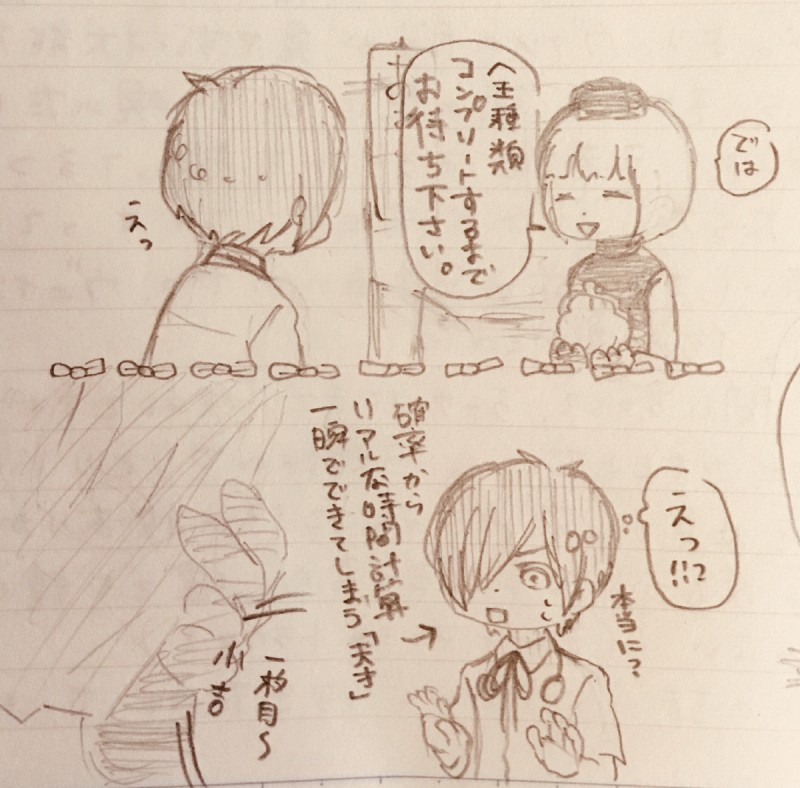 では
全種類
コンプリートするまで
お待ち下さい。
えっ
えっ!!?
本当に?
確率から
リアルな時間計算
一瞬でできてしまう「天才」
一枚目〜
小吉